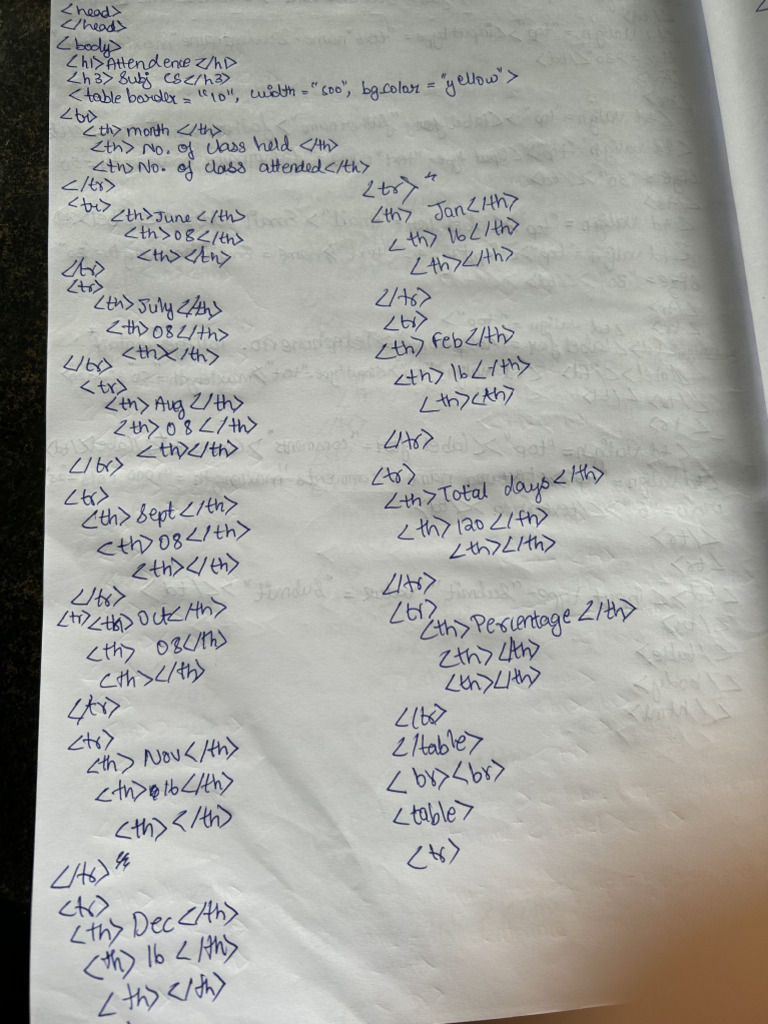 <head>
</head>
<body>
<h1>Attendence</h1>
<h3>Subj CS</h3>
<table border = "10", width = "600", bgcolor = "yellow">
<tr>
<th>month</th>
<th>No. of class held</th>
<th>No. of class attended</th>
</tr>
<tr>
<th>June</th>
<th>08</th>
<th></th>
</tr>
<tr>
<th>July</th>
<th>08</th>
<th></th>
</tr>
<tr>
<th>Aug</th>
<th>08</th>
<th></th>
</tr>
<tr>
<th>Sept</th>
<th>08</th>
<th></th>
</tr>
<tr><th>Oct</th>
<th> 08</th>
<th></th>
</tr>
<tr>
<th> Nov</th>
<th>16</th>
<th></th>
</tr>"
<tr>
<th> Dec</th>
<th> 16</th>
<th></th>
<tr>"
<th> Jan</th>
<th> 16</th>
<th></th>
</tr>
<tr>
<th> Feb</th>
<th> 16</th>
<th><th>
</tr>
<tr>
<th>Total days</th>
<th>120</th>
<th></th>
</tr>
<tr>
<th>Percentage</th>
<th></th>
<th></th>
</tr>
</table>
<br><br>
<table>
<tr>